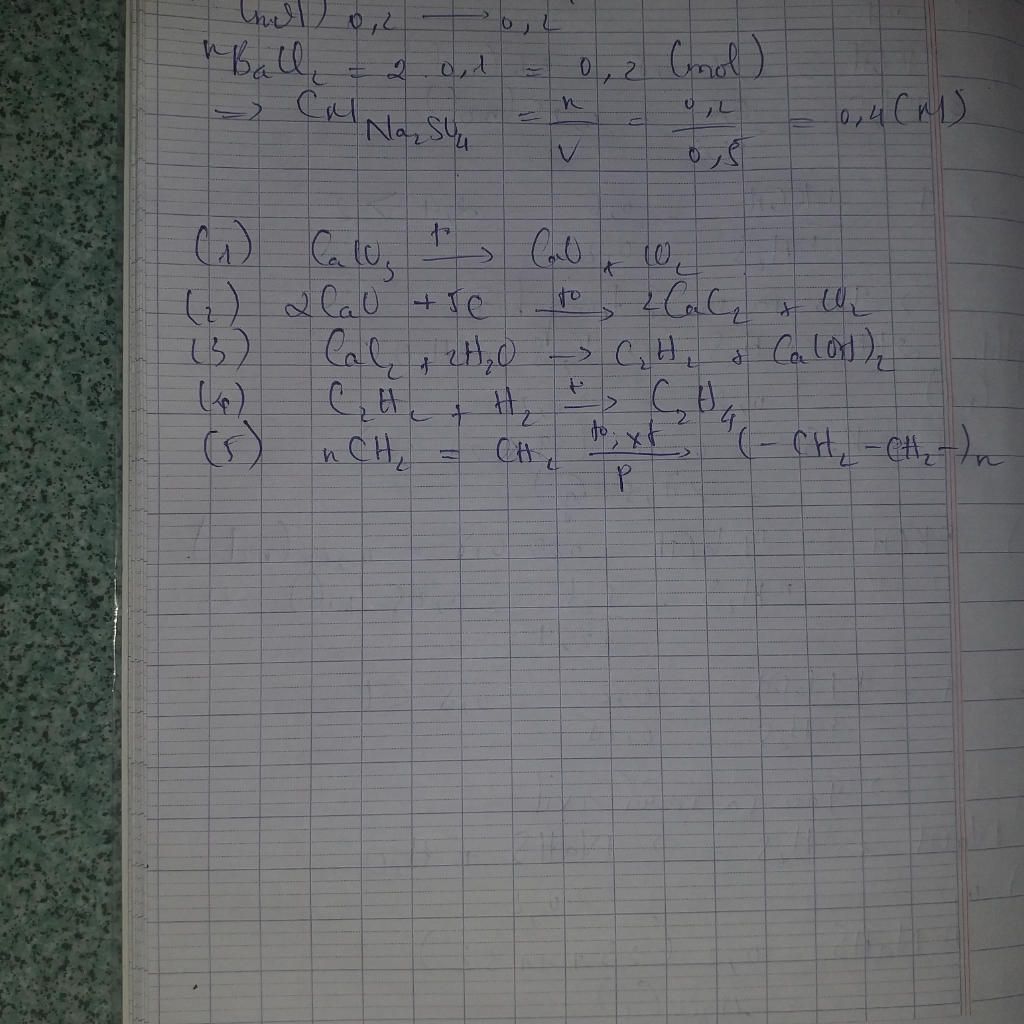 (mol) 0,2 → 0,2
nBaCl₂ = 2 0,1 = 0,2 (mol)
=> CM Na₂SO₄ = n/V = 0,2/0,5 = 0,4 (M)
(1) CaCO₃ t° → CaO + CO₂
(2) 2CaO + 5C t° → 2CaC₂ + CO₂
(3) CaC₂ + 2H₂O → C₂H₂ + Ca(OH)₂
(4) C₂H₂ + H₂ t° → C₂H₄
(5) nCH₂ = CH₂ t°, xt → p (- CH₂ - CH₂ -)n